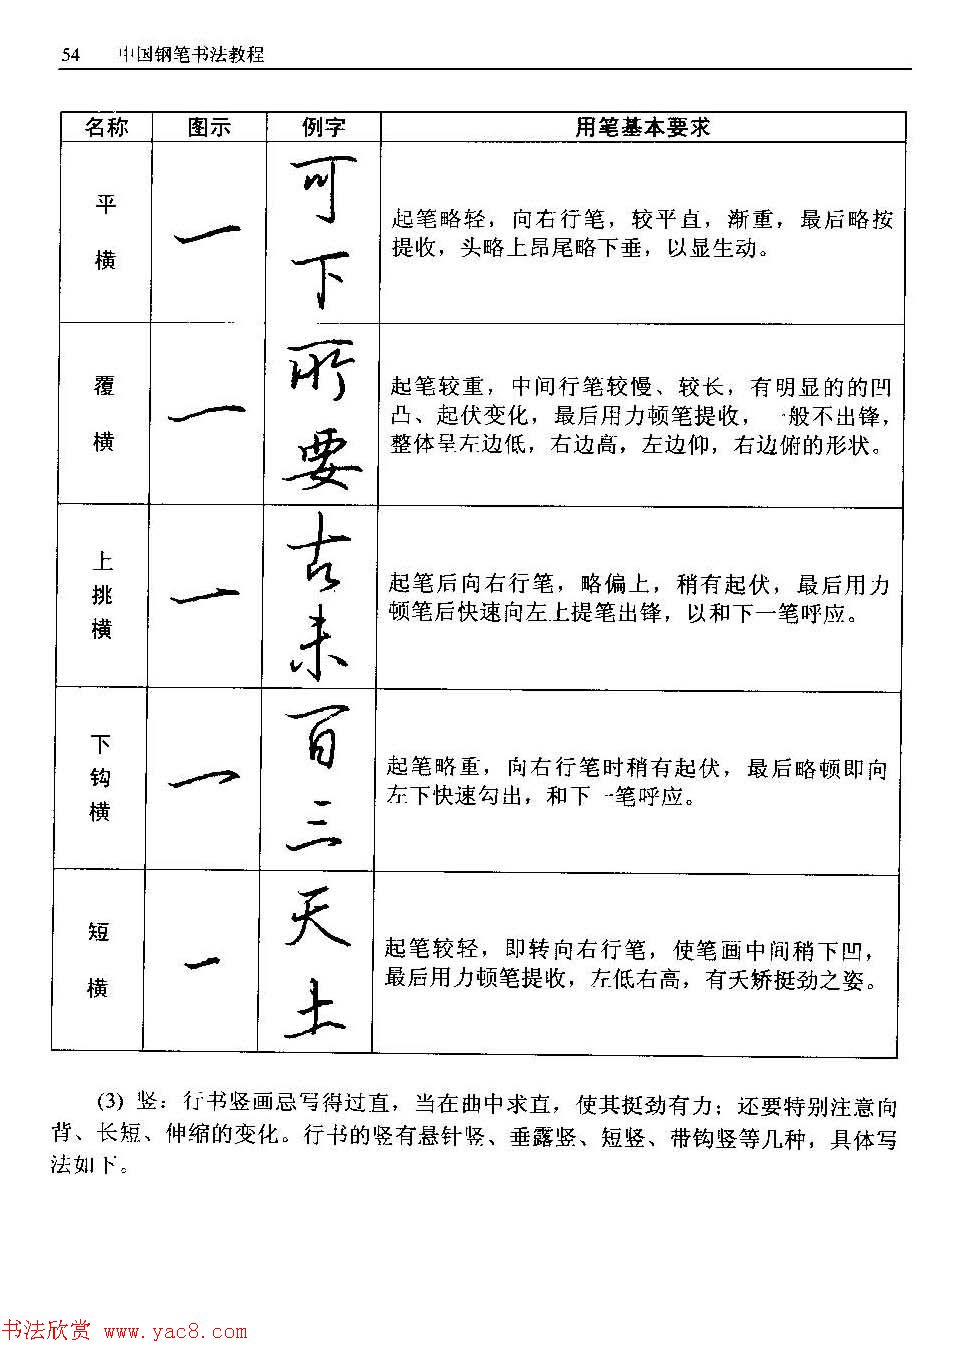 54 中国钢笔书法教程
名称 图示 例字 用笔基本要求
平横 可下
起笔略轻，向右行笔，较平直，渐重，最后略按
提收，头略上昂尾略下垂，以显生动。
覆横 所要
起笔较重，中间行笔较慢、较长，有明显的的凹
凸、起伏变化，最后用力顿笔提收，一般不出锋，
整体呈左边低，右边高，左边仰，右边俯的形状。
上挑横 古未
起笔后向右行笔，略偏上，稍有起伏，最后用力
顿笔后快速向左上提笔出锋，以和下一笔呼应。
下钩横 百三
起笔略重，向右行笔时稍有起伏，最后略顿即向
左下快速勾出，和下一笔呼应。
短横 天土
起笔较轻，即转向右行笔，使笔画中间稍下凹，
最后用力顿笔提收，左低右高，有夭矫挺劲之姿。
(3) 竖：行书竖画忌写得过直，当在曲中求直，使其挺劲有力；还要特别注意向
背、长短、伸缩的变化。行书的竖有悬针竖、垂露竖、短竖、带钩竖等几种，具体写
法如下。
书法欣赏 www.yac8.com